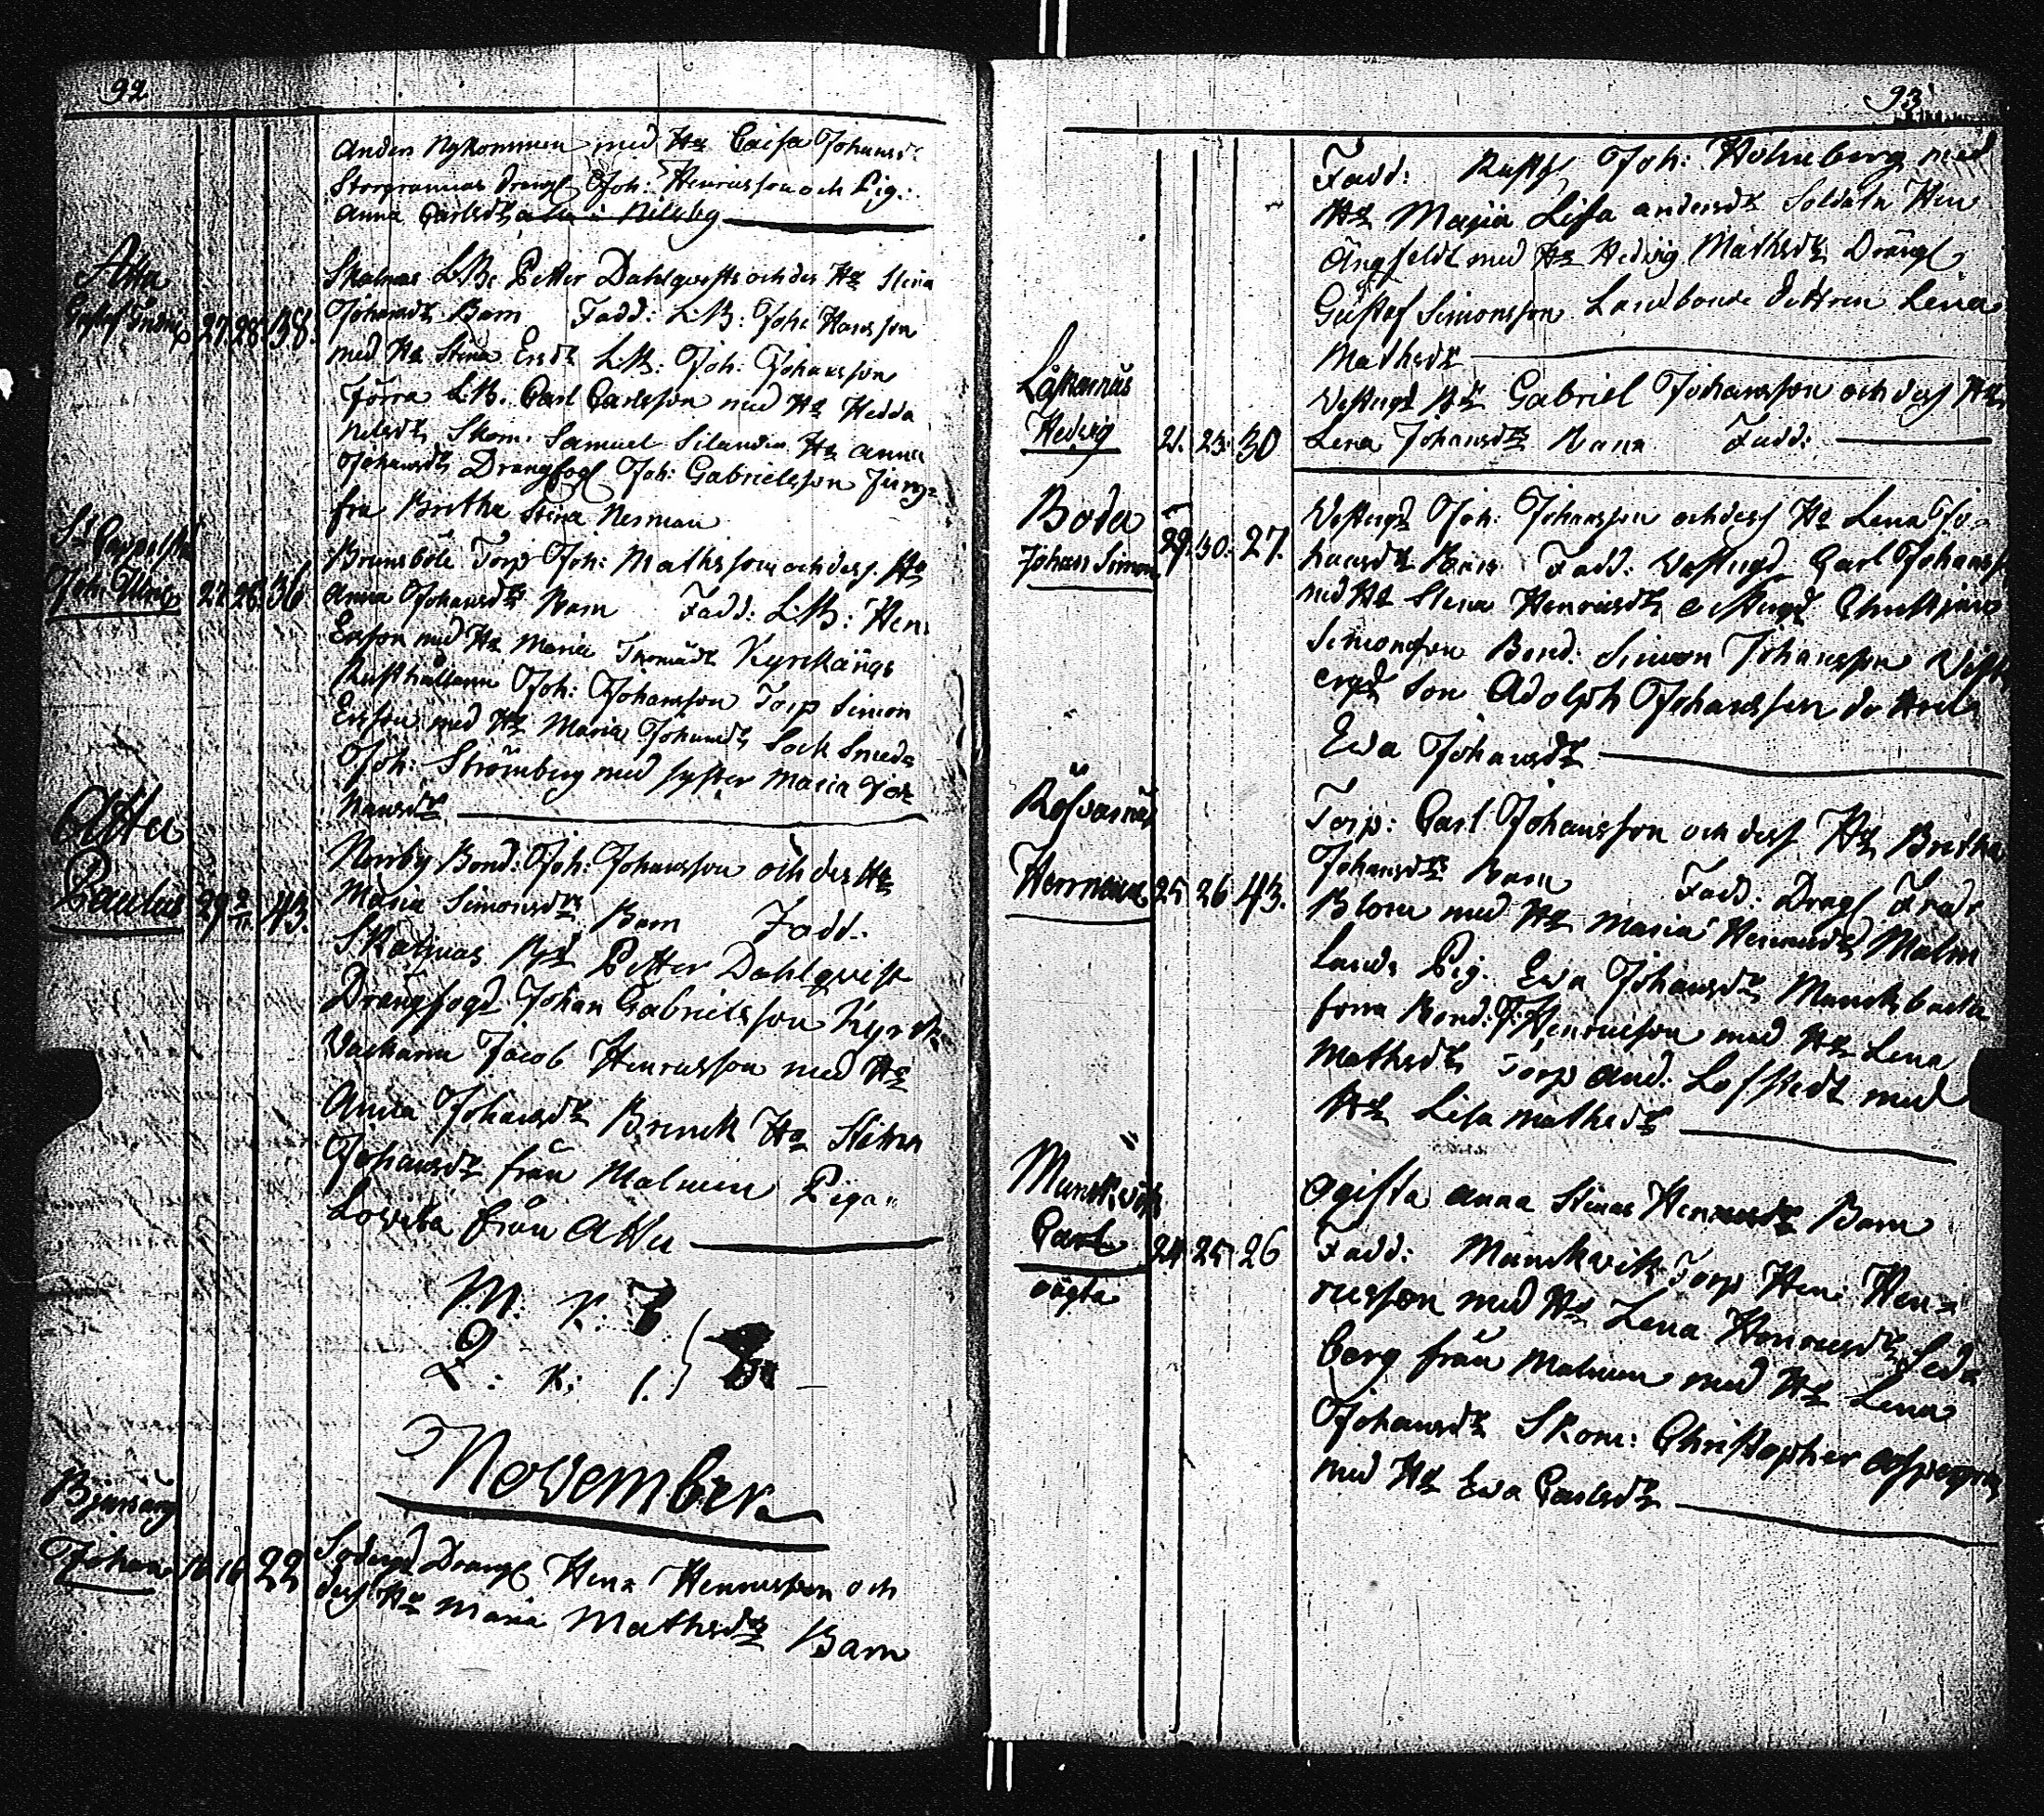 92
Anders Nykommen med Hu Caisa Johansdr
Storgrannas Dreng Joh: Henricsson och Pig:
Anna Carlsdr Nilsby
Atta
Gustaf 27. 28. 38.
Skatnas L.B: Petter Dahlqvists och des Hu Stina
Johansdr Barn Fadd: L:B: Joh: Hansson
med Hu Stina Ersdr L:B: Joh: Johansson
Förra L:B: Carl Carlsson med Hu Hedda
Nilsdr Skom: Samuel Silander Hu Anna
Johansdr Drengfogd Joh: Gabrielsson Jung=
fru Britha Stina Nerman
St
Joh: Ulric 27. 28. 36
Brunsböle Torp Joh: Mathsson och des Hu
Anna Johansdr Barn Fadd: L:B: Hen:
Ersson med Hu Maria Thomasdr Kyrckängs
Rusthållaren Joh: Johansson Torp Simon
Ersson med Hu Maria Johansdr Sock Smed=
Joh: Strömberg med syster Maria Jo=
hansdr
Atta
Paulus 29 2/11 43.
Norrby Bond: Joh: Johansson och des Hu
Maria Simonsdr Barn Fadd:
Skatnas Petter Dahlqvist
Drängfogd Johan Gabrielsson Kyrck
Jacob Henricsson med Hu
Anna Johansdr Brinck Hu Stina
Johansdr från Malmen Piga
Lovisa från Attu
M: K: 7.
Q: K: 1.
November
Bjensäng
Johan 16 16 22
Dräng Hen: Henricsson och
des Hu Maria Mathsdr Barn
93
Fadd: Rusth Joh: Holmberg med
Hu Maria Lisa Andersdr Soldaten Hen
Ängfeldt med Hu Hedvig Mathsdr Drängs
Gustaf Simonsson Landbonde dottren Lena
Mathsdr
Låkarnäs
Hedvig 21. 23. 30
Gabriel Johansson och des Hu
Lena Johansdr Barn Fadd:
Boda
Johan Simon 29. 30. 27.
Joh: Johansson och des Hu Lena Jo=
hansdr Barn Fadd: Carl Johanss
med Hu Stina Henricsdr Christian
Simonsson Bond: Simon Johansson
son Adolph Johansson dottren
Eva Johansdr
Herrman 25 26 43.
Torp: Carl Johansson och des Hu Britha
Johansdr Barn Fadd: Drägs Fredr
Blom med Hu Maria Henricsdr Malm
Lands Pig. Eva Johansdr Munckbacka
förra Bond: J: Henricsson med Hu Lena
Mathsdr Torp And: Löfstedt med
Hu Lisa Mathsdr
Munckvik
Carl 24 25 26
oägta
Ogifta Anna Stinas Henricsdr Barn
Fadd: Munckvik Torp Hen: Hen=
ricsson med Hu Lena Henricsdr Sed=
berg från Malmen med Hu Lena
Johansdr Skom: Christopher Aspegren
med Hu Eva Carlsdr